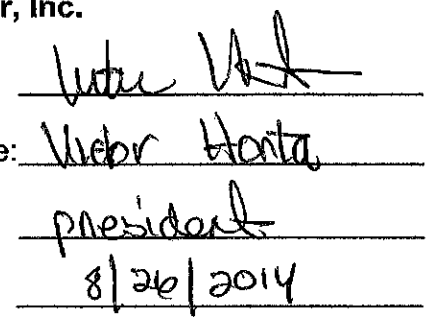 r, Inc.
Victor
e: Victor Horta
president
8/26/2014